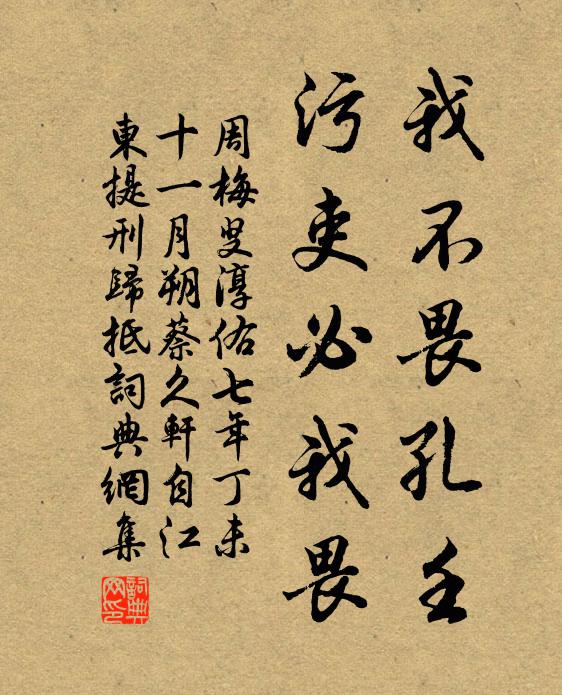 我不畏孔壬
污吏必我畏
周梅叟淳佑七年丁未
十一月朔蔡久軒自江
東提刑歸抵詞典網集
詞典网印